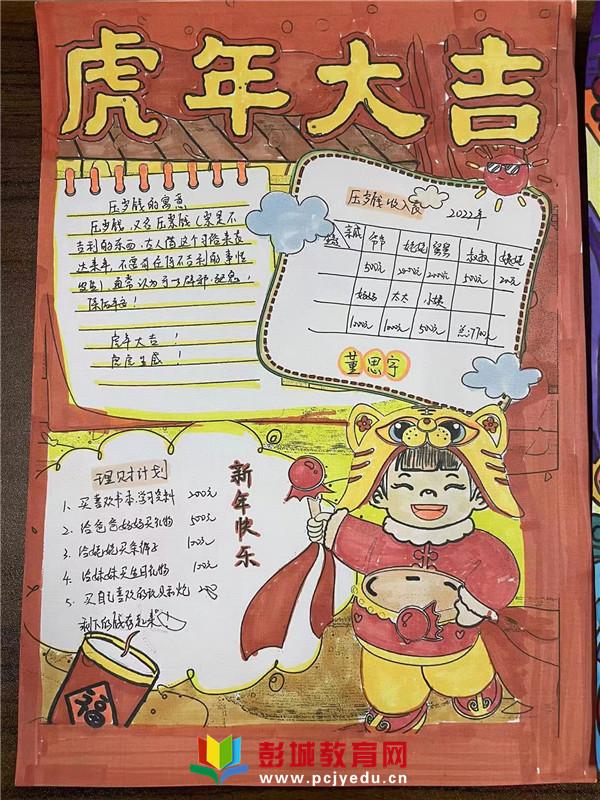 虎年大吉
压岁钱的寓意
压岁钱，又名压祟钱（祟是不
吉利的东西，古人借这个习俗来表
达来年，不要有任何不吉利的事情
发生），通常认为可了辟邪驱鬼，
保佑平安！
虎年大吉！
虎虎生威！
压岁钱收入表 2022年
爷爷 姥姥 舅舅 叔叔
500元 2000元 500元 20元
妈妈 大大 小姨
1000元 1000元 500元
董思宇
理财计划
1、买喜欢书本，学习资料 200元
2、给爸爸妈妈买礼物 500元
3、给姥姥买条裤子 100元
4、给妹妹买生日礼物 100元
5、买自己喜欢的玩具和炮 200
剩下的钱存起来
新年快乐
福
彭城教育网
www.pcjyedu.cn